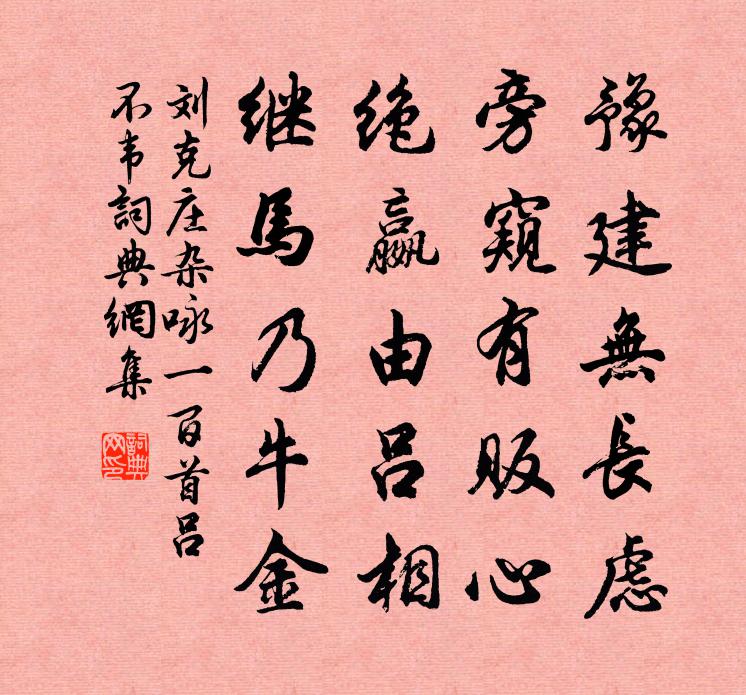 豫建無長慮
旁窺有販心
绝嬴由吕相
继馬乃牛金
刘克庄杂咏一百首吕
不韦詞典網集
詞典网印